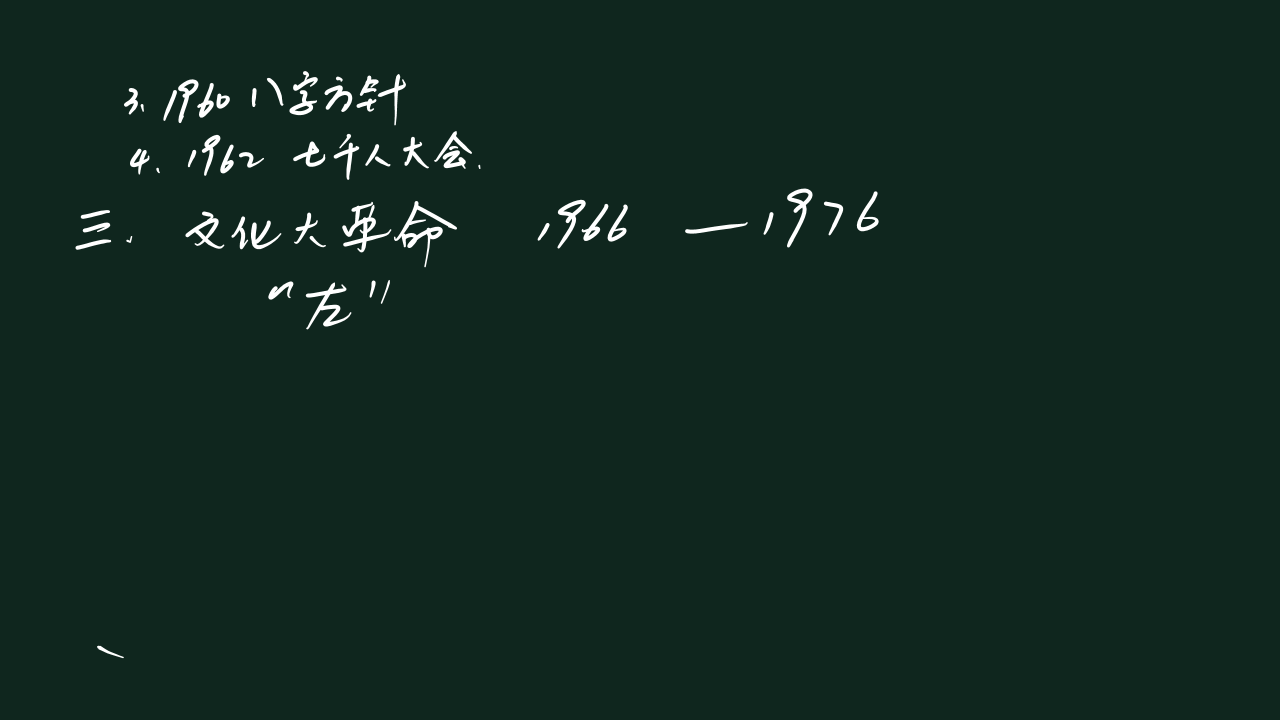 3、1960 八字方针
4、1962 七千人大会.
三. 文化大革命 1966 —1976
“左”